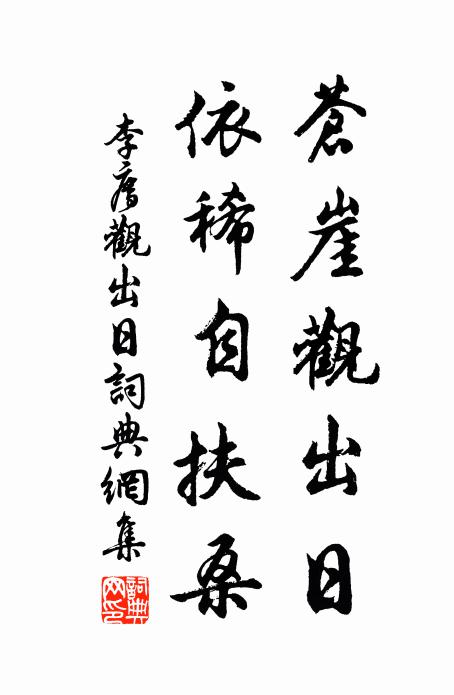 蒼崖觀出日
依稀自扶桑
李廌觀出日詞典網集
詞典網印